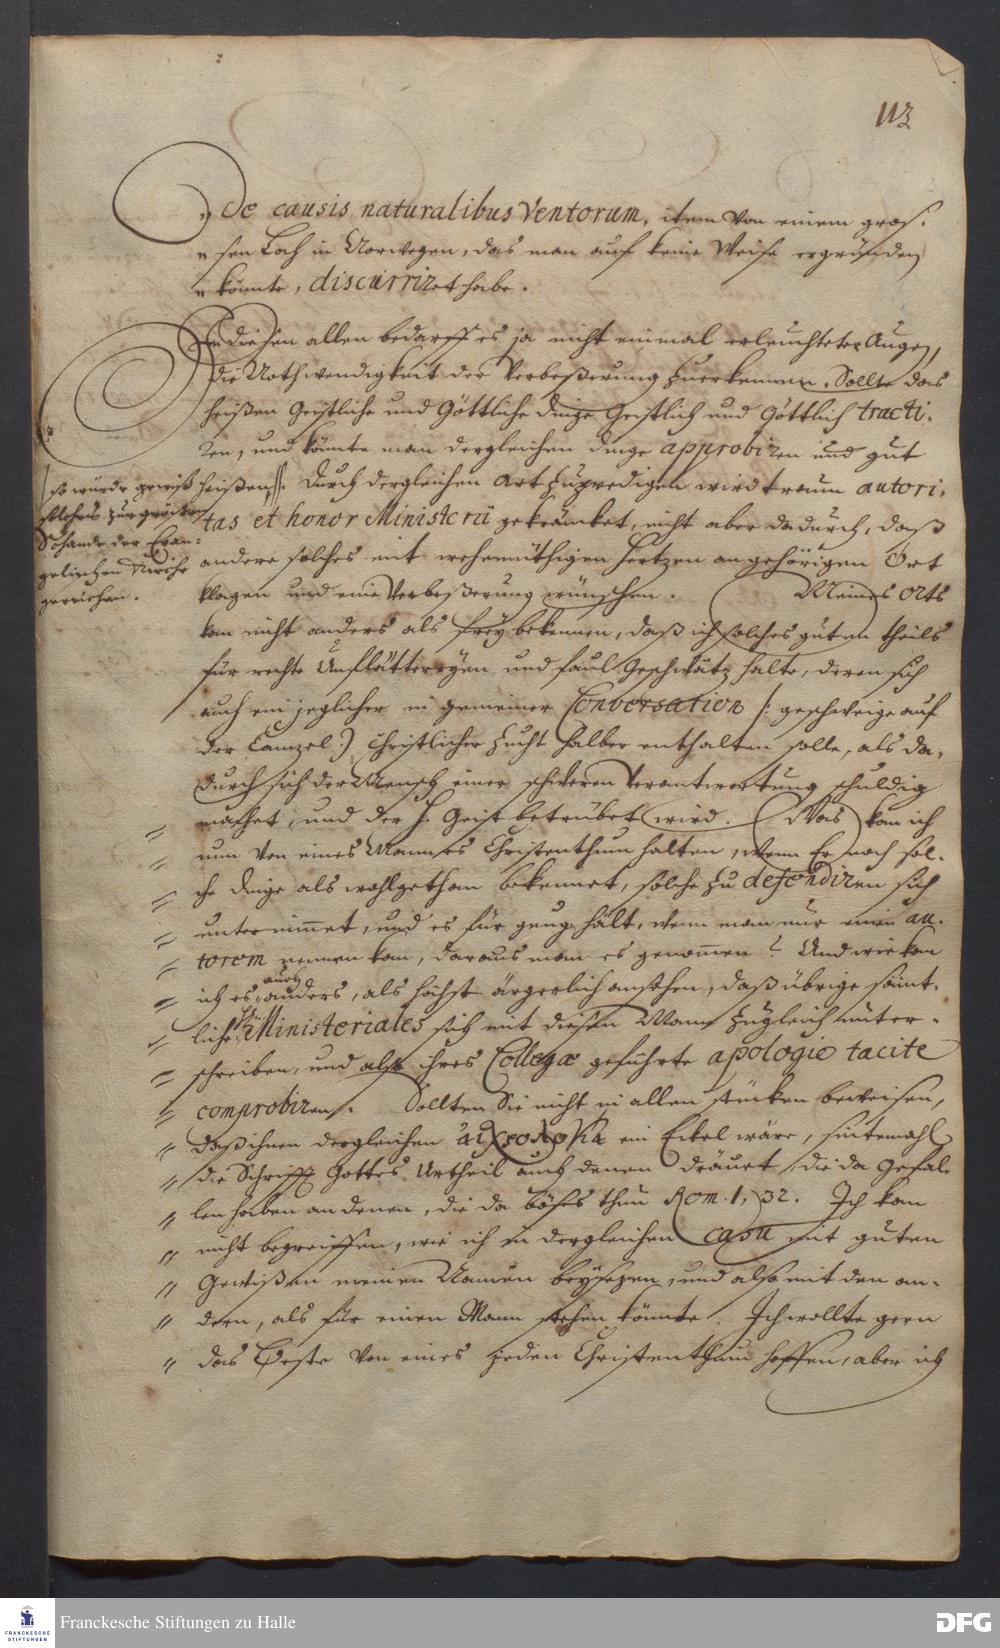 113
„ De causis naturalibus Ventorum, item von einem gros-
„ sen Loch in Norwegen, das man auf keine Weise ergründen
„ könnte, discurriret habe.
In diesen allen bedarff es ja nicht einmal erleuchteter Augen,
die Nothwendigkeit der Verbeßerung zuerkennen. Sollte das
heißen Geistliche und Göttliche dinge Geistlich und Göttlich tracti-
ren, und könnte man dergleichen dinge approbiren und gut
heißen, durch dergleichen Art zupredigen wird traun autori-
so würde gewiß
solches zur größten
Schande der Evan-
gelischen Kirche
gereichen.
tas et honor Ministerii gekräncket, nicht aber dadurch, daß
andere solches mit wehmüthigen Hertzen an gehörigen Ort
klagen und eine Verbeßerung wünschen. Meines Orts
kan nicht anders als frey bekennen, daß ich solches guten theils
für rechte Unflättereyen und faul Geschwätz halte, deren sich
auch ein jeglicher in gemeiner Conversation /: geschweige auf
der Cantzel :/ Christlicher Zucht halber enthalten solle, als da-
durch sich der Mensch einer schweren Verantwortung schuldig
machet, und der H. Geist betrübet wird. Was kan ich
„ nun von eines Mannes Christenthum halten, wenn Er noch sol-
„ che dinge als wohlgethan bekennet, solche zu defendiren sich
„ unternimmet, und es für gnug hält, wenn man nur einen au-
„ torem nennen kan, daraus man es genommen? Und wie kan
„ ich es auch anders, als höchst ärgerlich ansehen, daß übrige sämt-
„ liche Ministeriales sich mit diesen Mann zugleich unter-
„ schreiben, und also ihres Collegæ geführte apologie tacite
„ comprobiren. Sollten Sie nicht in allen stücken beweisen,
„ daß ihnen dergleichen αἰχρολογία ein Eckel wäre, sintemahl
„ die Schrifft Gottes Urtheil auch denen dräuet, die da Gefal-
„ len haben an denen, die da böses thun Rom. 1, 32. Ich kan
„ nicht begreiffen, wie ich in dergleichen casu mit guten
„ Gewißen meinen Namen beysezen, und also mit den an-
„ dern, als für einen Mann stehen könnte. Ich wollte gern
„ das Beste von eines jeden Christenthum hoffen, aber ich
FRANCKESCHE STIFTUNGEN
Franckesche Stiftungen zu Halle
DFG